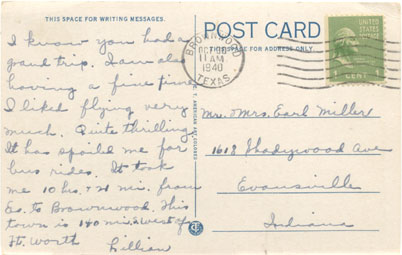 THIS SPACE FOR WRITING MESSAGES.
POST CARD
THIS SPACE FOR ADDRESS ONLY.
BROWNWOOD
OCT
11 AM
1940
TEXAS
UNITED STATES
1 CENT
I know you had a
grand trip. I am also
having a fine time
I liked flying very
much. Quite thrilling.
It has spoiled me for
bus rides. It took
me 10 hrs. + 21 min. from
Ev. to Brownwood. This
town is 140 mi. west of
Ft. Worth
Lillian
Mr. + Mrs. Earl Miller
1618 Shadywood Ave
Evansville
Indiana